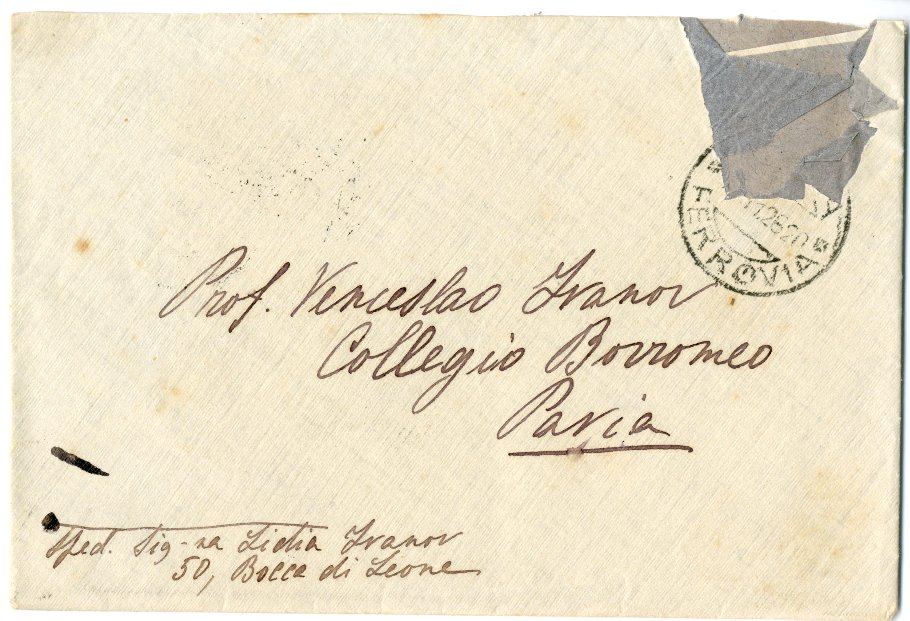 FERROVIA
Prof. Venceslao Ivanov
Collegio Borromeo
Pavia
Sped. Sig-na Lidia Ivanov
50, Bocca di Leone